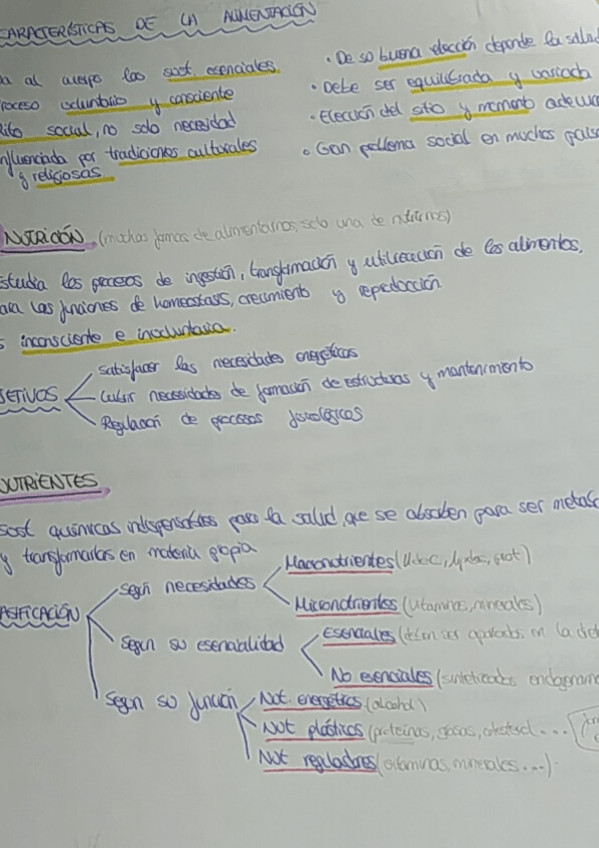 CARACTERÍSTICAS DE LA ALIMENTACIÓN
al cuerpo las sust. esenciales.
proceso voluntario y consciente
social, no solo necesidad
influenciada por tradiciones culturales
y religiosas.
• De su buena elección depende la salud
• Debe ser equilibrada y variada
• Elección del sitio y momento
• Gran problema social en muchos
NUTRICIÓN (muchas formas de alimentarnos, solo una de nutrirnos)
Estudia los procesos de ingestión, transformación y utilización de los alimentos,
para las funciones de homeostasis, crecimiento y reproducción
inconsciente e involuntaria.
JETIVOS
Satisfacer las necesidades energéticas
Cubrir necesidades de formación de estructuras y mantenimiento
Regulación de procesos fisiológicos
NUTRIENTES
Sust químicas indispensables para la salud, que se absorben para ser
y transformarlas en materia propia
ASIFICACIÓN
Según necesidades
Macronutrientes (HdeC, lípidos, prot)
Micronutrientes (vitaminas, minerales)
Según su esencialidad
Esenciales (deben ser aportados en la
No esenciales (sintetizados
Según su función
Nut. energéticos (alcohol)
Nut plásticos (proteínas, grasas, colesterol...
Nut reguladores (vitaminas, minerales...).